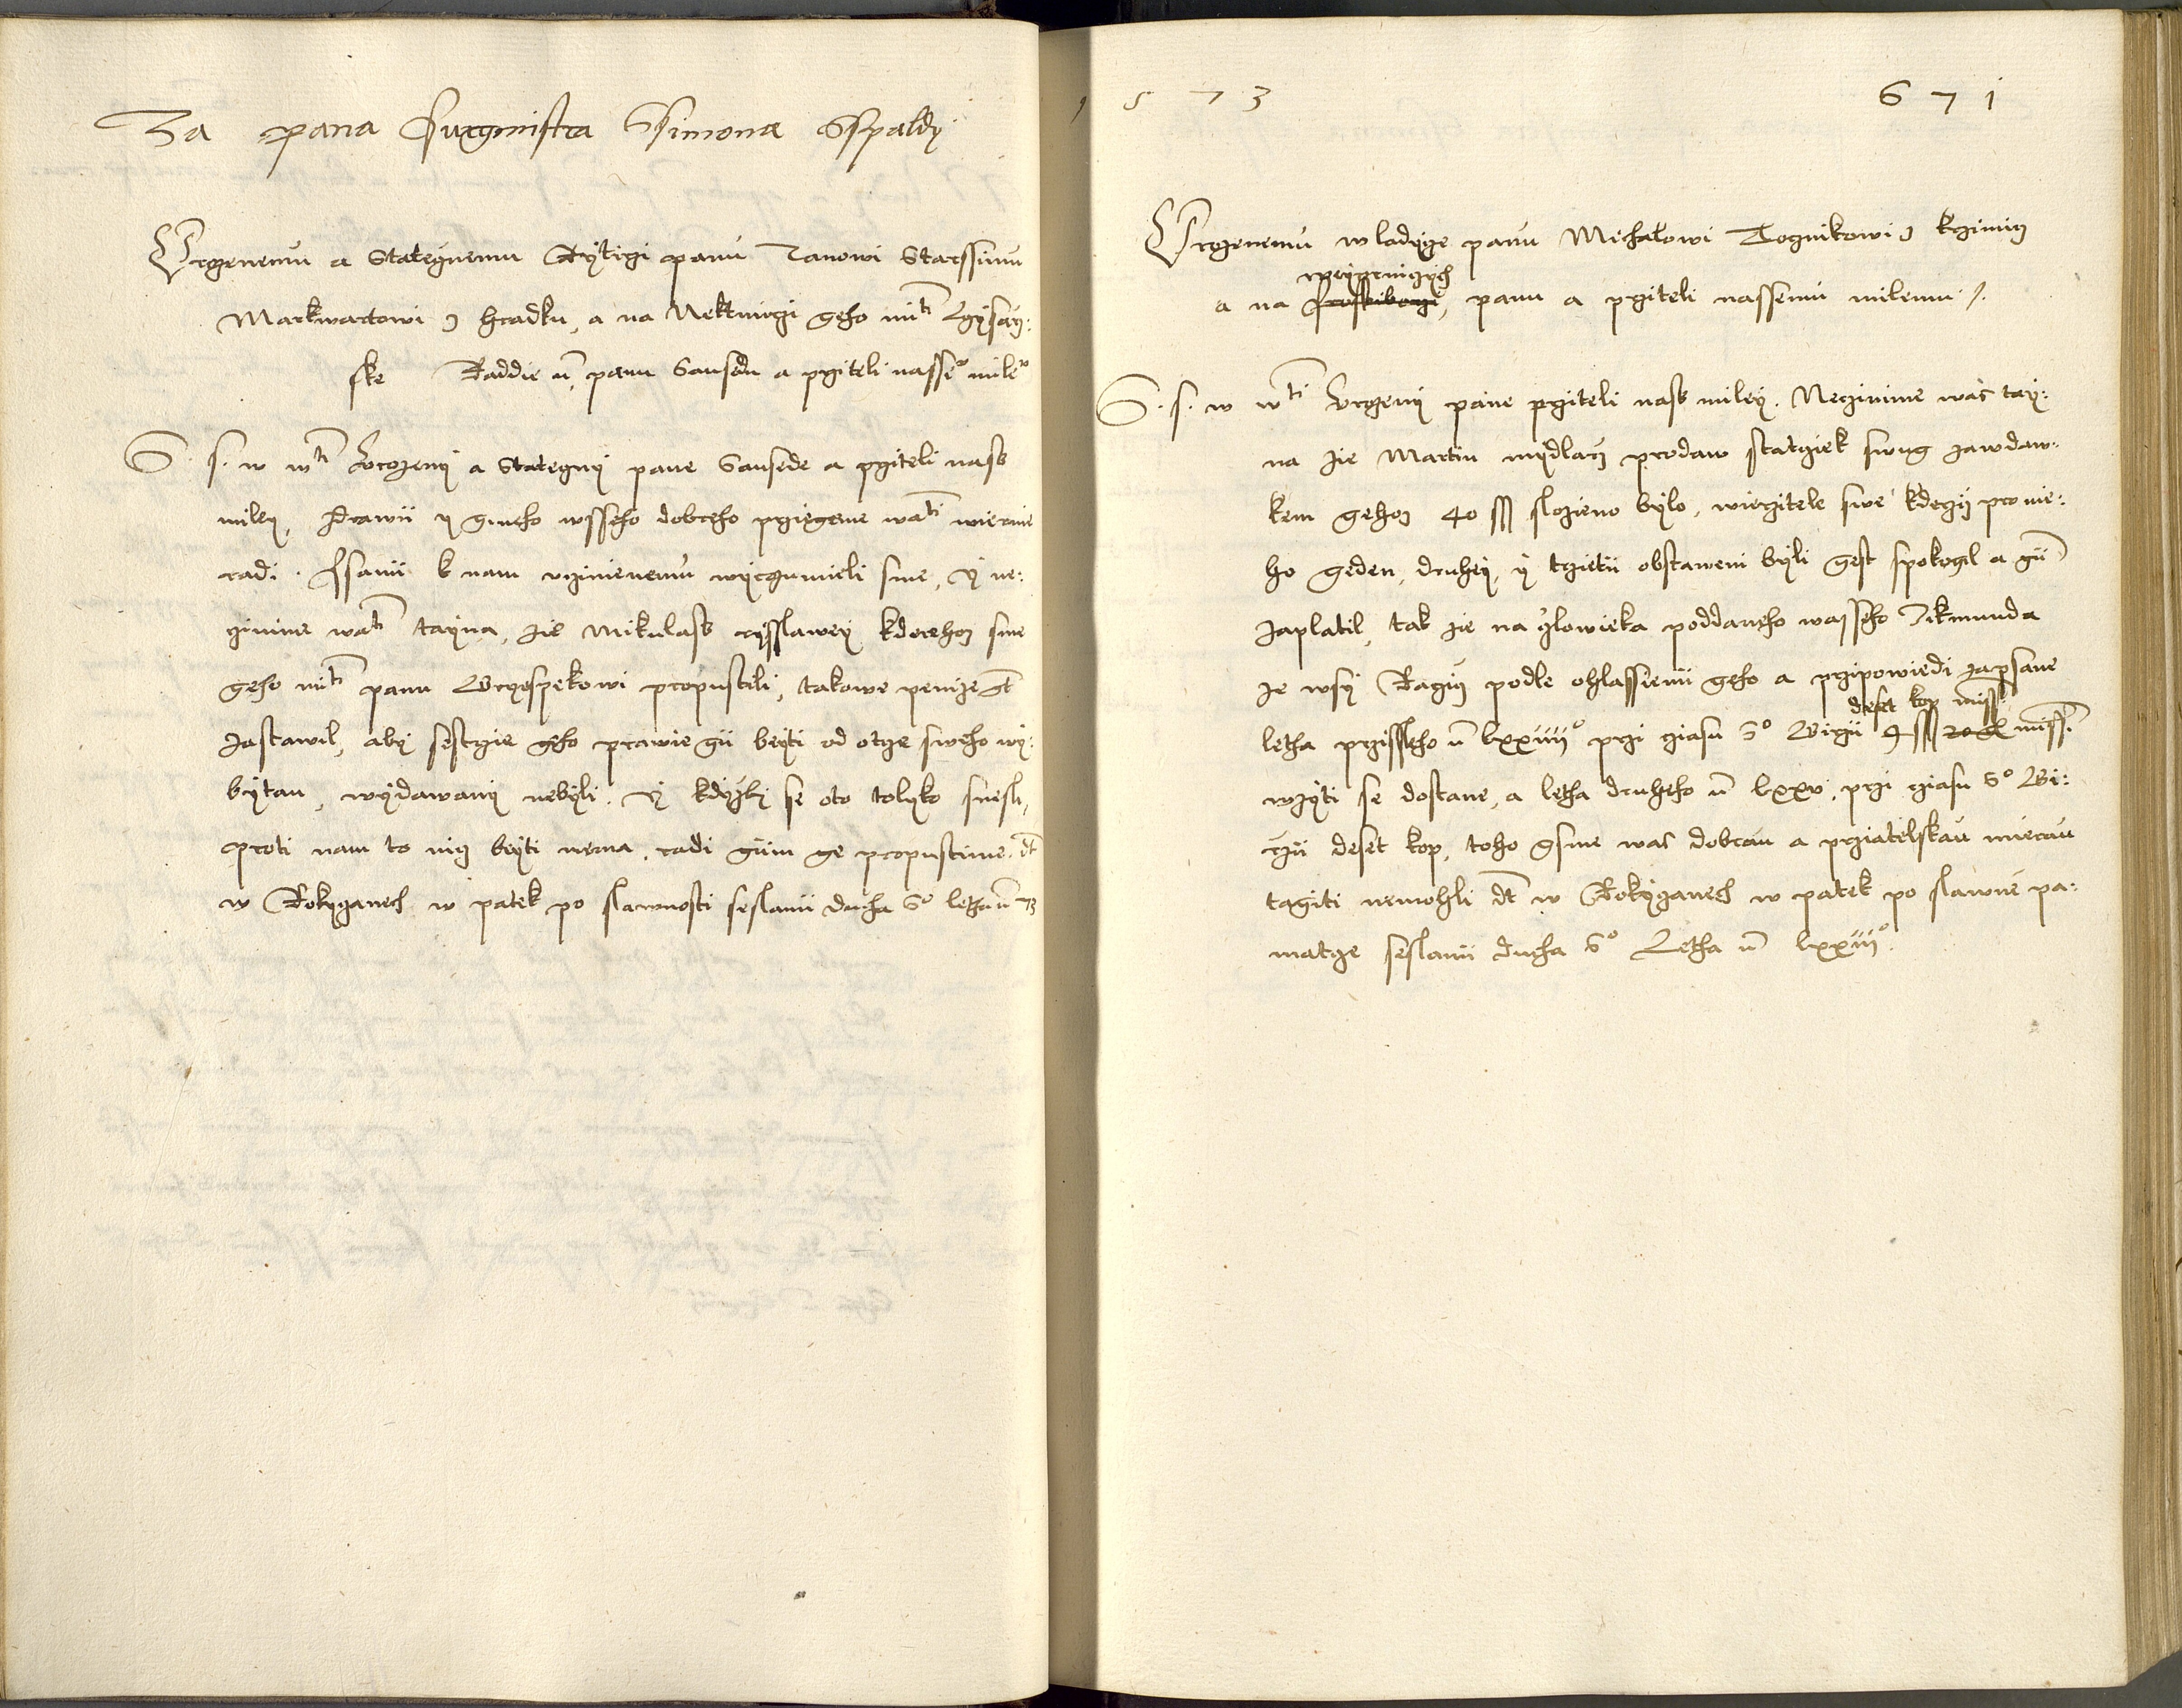 Za pana Purgmistra Ssimona Sspaldy
Urozenemu a Statecznemu Rytirzi panu Janowi Starssimu
Markwartowi z Hradku, a na Nektmirzi geho mti Czysarz:
ske Raddie &c, panu Sausedu a przitели nasse° mile°
S. s. w wti Urozeny a Stateczny pane Sausede a prziteli nass
miley, Zdrawii y gineho wsseho dobreho przegeme wati wiernie
radi. Psanii k nam uczinenemu wyrozumieli sme, y ne:
czinime wati tayna, zie Mikulass ryssawey kterehoz sme
geho mti panu Wrzospekowi propustili, takowe penize gt
zastawil, aby sestrzie geho prawie gii beyti od otcze sweho wy:
bytau, wydawany nebyli. Y kdyzby se oto tolyko snesli,
proti nam to nicz beyti nema, radi giim ge propustime. dt
w Rokyczanech w patek po slawnosti seslanii ducha S° letha &c 73
1 5 7 3
6 7 1
Urozenemu wladycze panu Michalowi Tocznikowi z Krzimicz
a na panu a prziteli nassemu milemu /.
S. s. w wti Urozeny pane prziteli nass miley. Neczinime was tay:
na zie Martin mydlarz prodaw statczek swug zawdaw:
kem gehoz 40 sss slozieno bylo, wierzitele swe kderzy pro nie:
ho geden, druhey, y trzetii obstaweni byli gest spokogil a gim
zaplatil, tak zie na czlowieka poddaneho wasseho Zikmunda
ze wsy Raczicz podle ohlassienii geho a przipowiedi zapsane
deset kop miss
letha przissteho &c lxxiiii° przi cziasu S° Wirzii miss.
wzyti se dostane, a letha druheho &c lxxv. przi cziasu S° Wi:
rzii deset kop, toho gsme was dobrau a przatelskau mierau
tagiti nemohli dt w Rokyczanech w patek po slawne pa:
matcze seslanii ducha S° Letha &c lxxiii°.